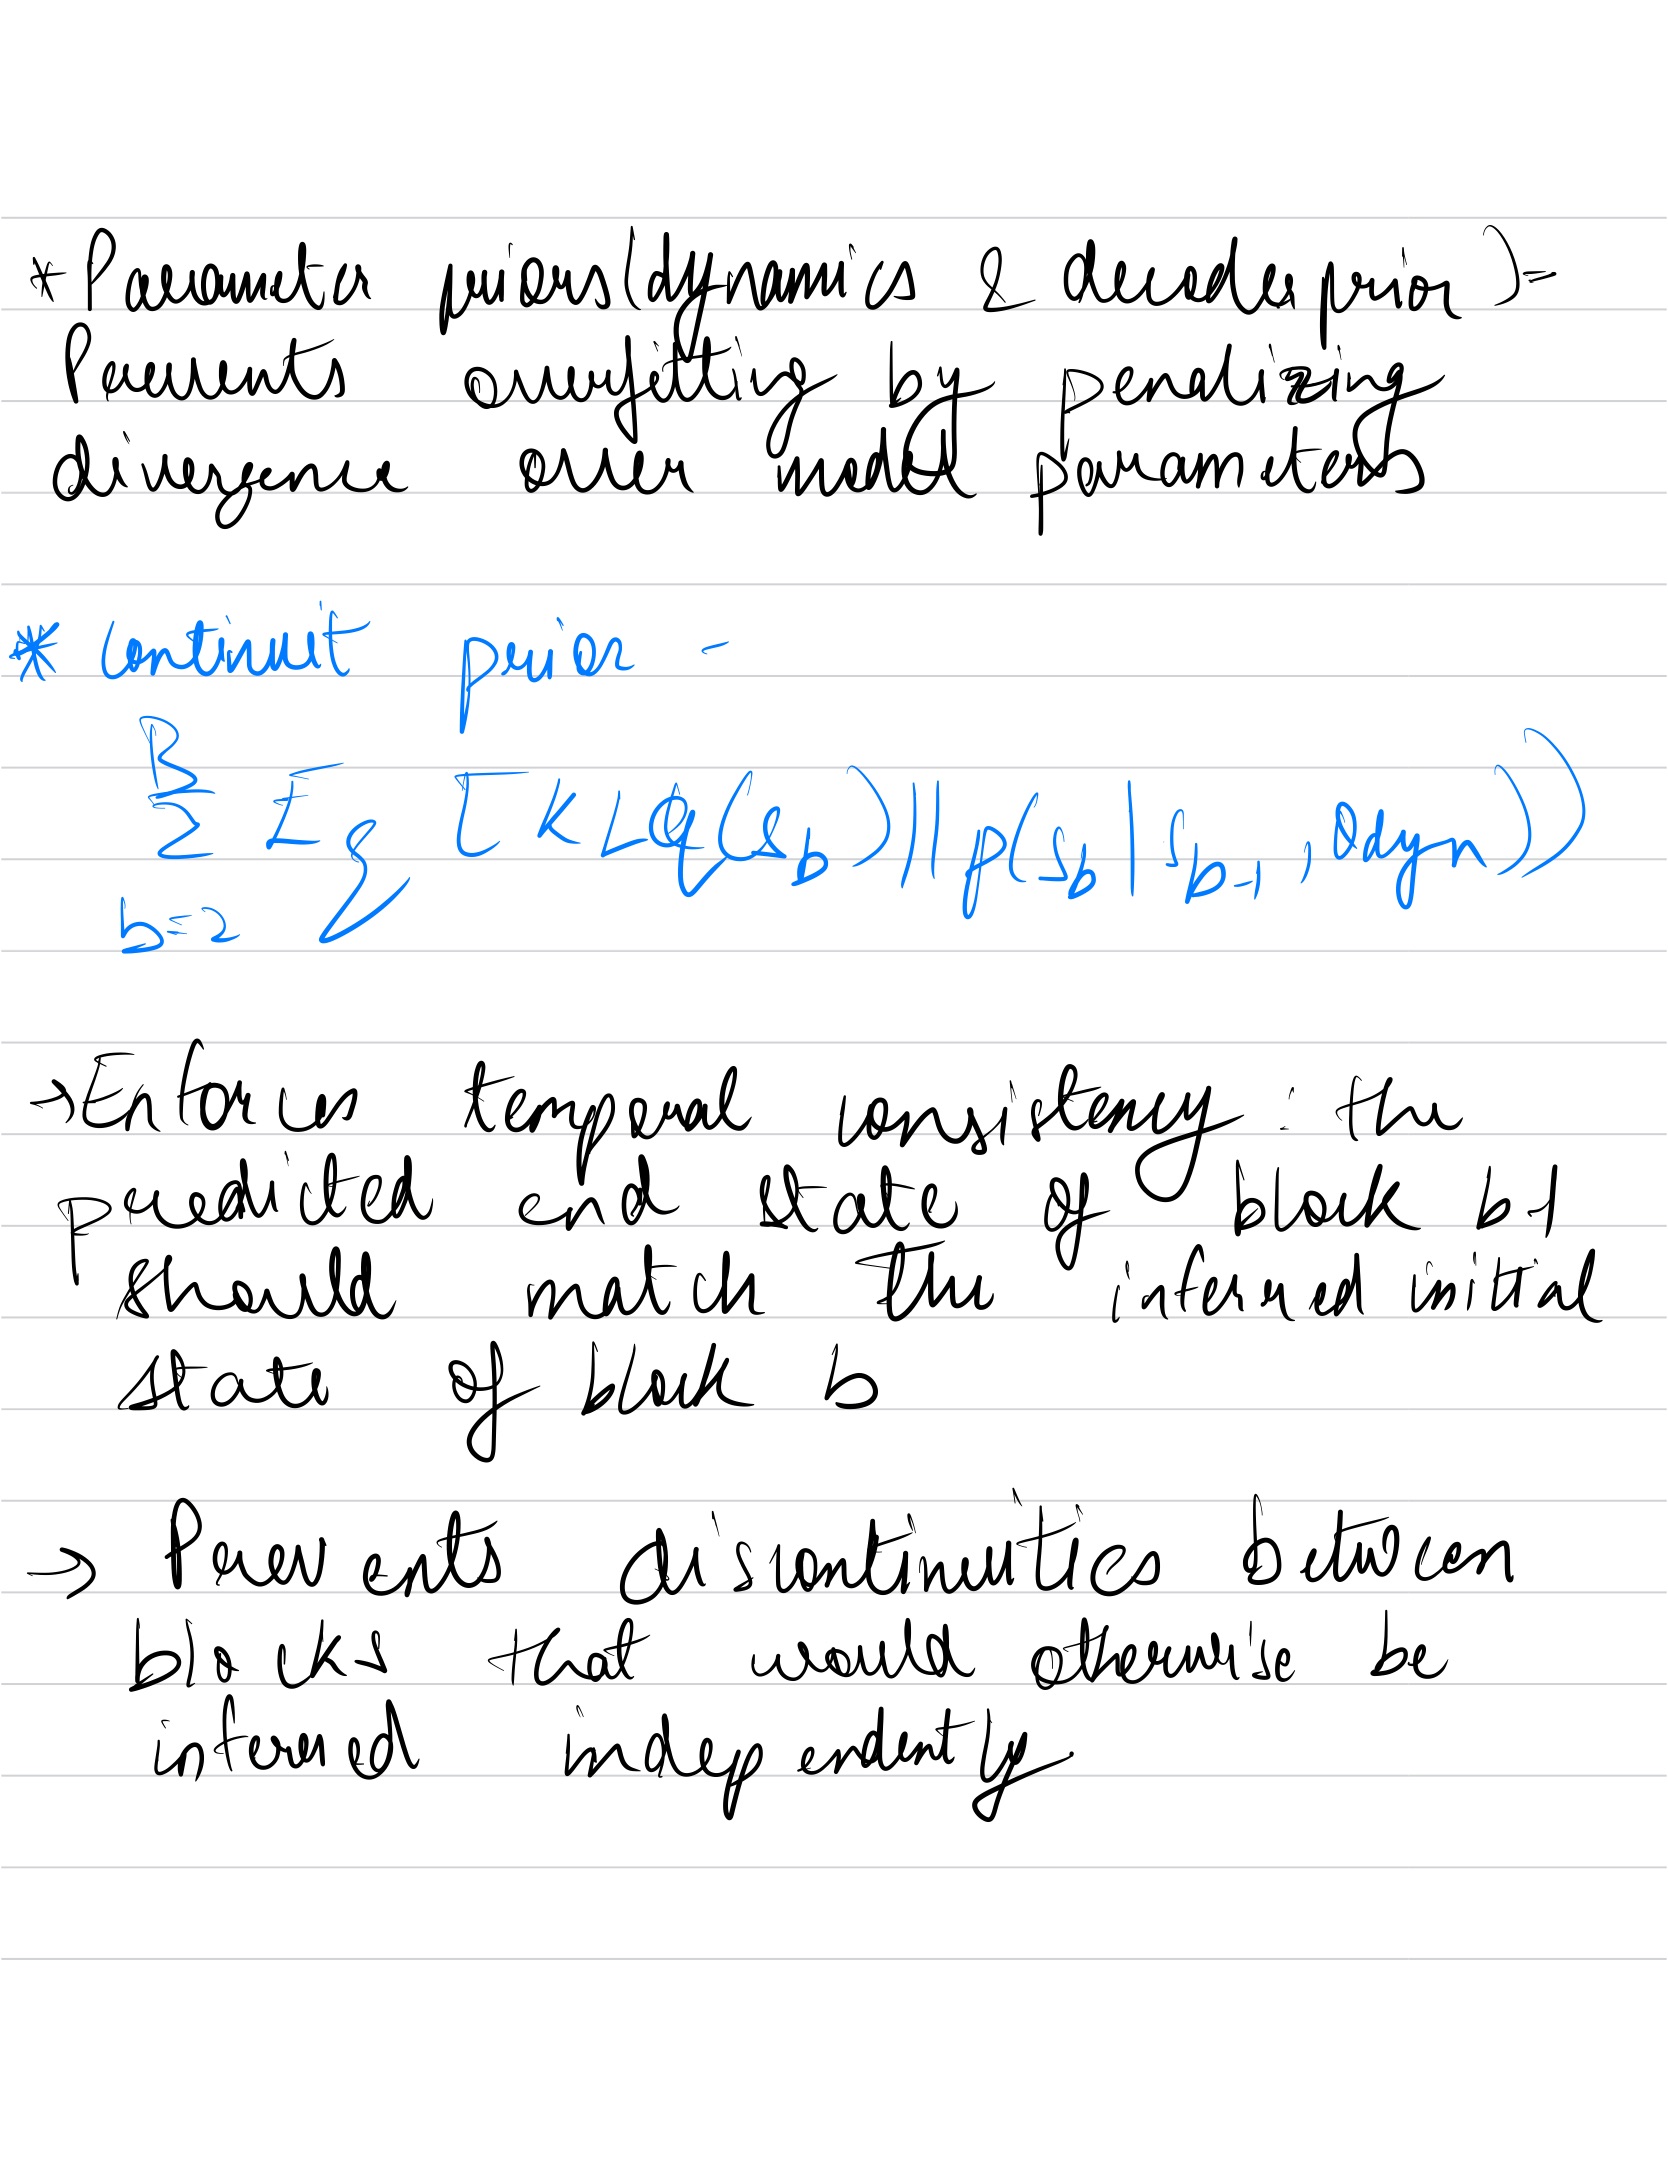 * Parameter priors (dynamics & decoder prior) -
Prevents overfitting by penalizing
divergence over model parameters
* Continuit prior -
B
Σ E_q [KL(q(s_b) || p(s_b | s_b-1, θdyn))
b=2
→ Enforces temporal consistency : the
predicted end state of block b-1
should match the inferred initial
state of block b
→ Prevents discontinuities between
blocks that would otherwise be
inferred independently.